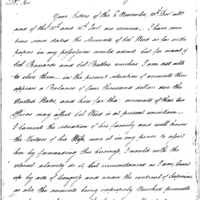 Dr. Sir
Your letters of the 6th November, 10th Dec. ult.
and of the 10th and 15th inst. are received. I have some
time since stated the Accounts of Col. Reid as far as the
papers in my possession would admit, but for want of
Col. Bayard's and Col. Butler's vouchers I am not able
to close them. in the present situation of accounts there
appears a Balance of four thousand dollars due the
United States, and how far the accounts of these two
officers may affect Col. Reid is at present uncertain.
I lament the situation of his family and will thank
the Writer of this was it in my power to
by forwarding this business, I would with the
utmost alacrity do it, but circumstanced as I am, bound
up by acts of Congress and under the controul of
as also the accounts being improperly vouched prevents